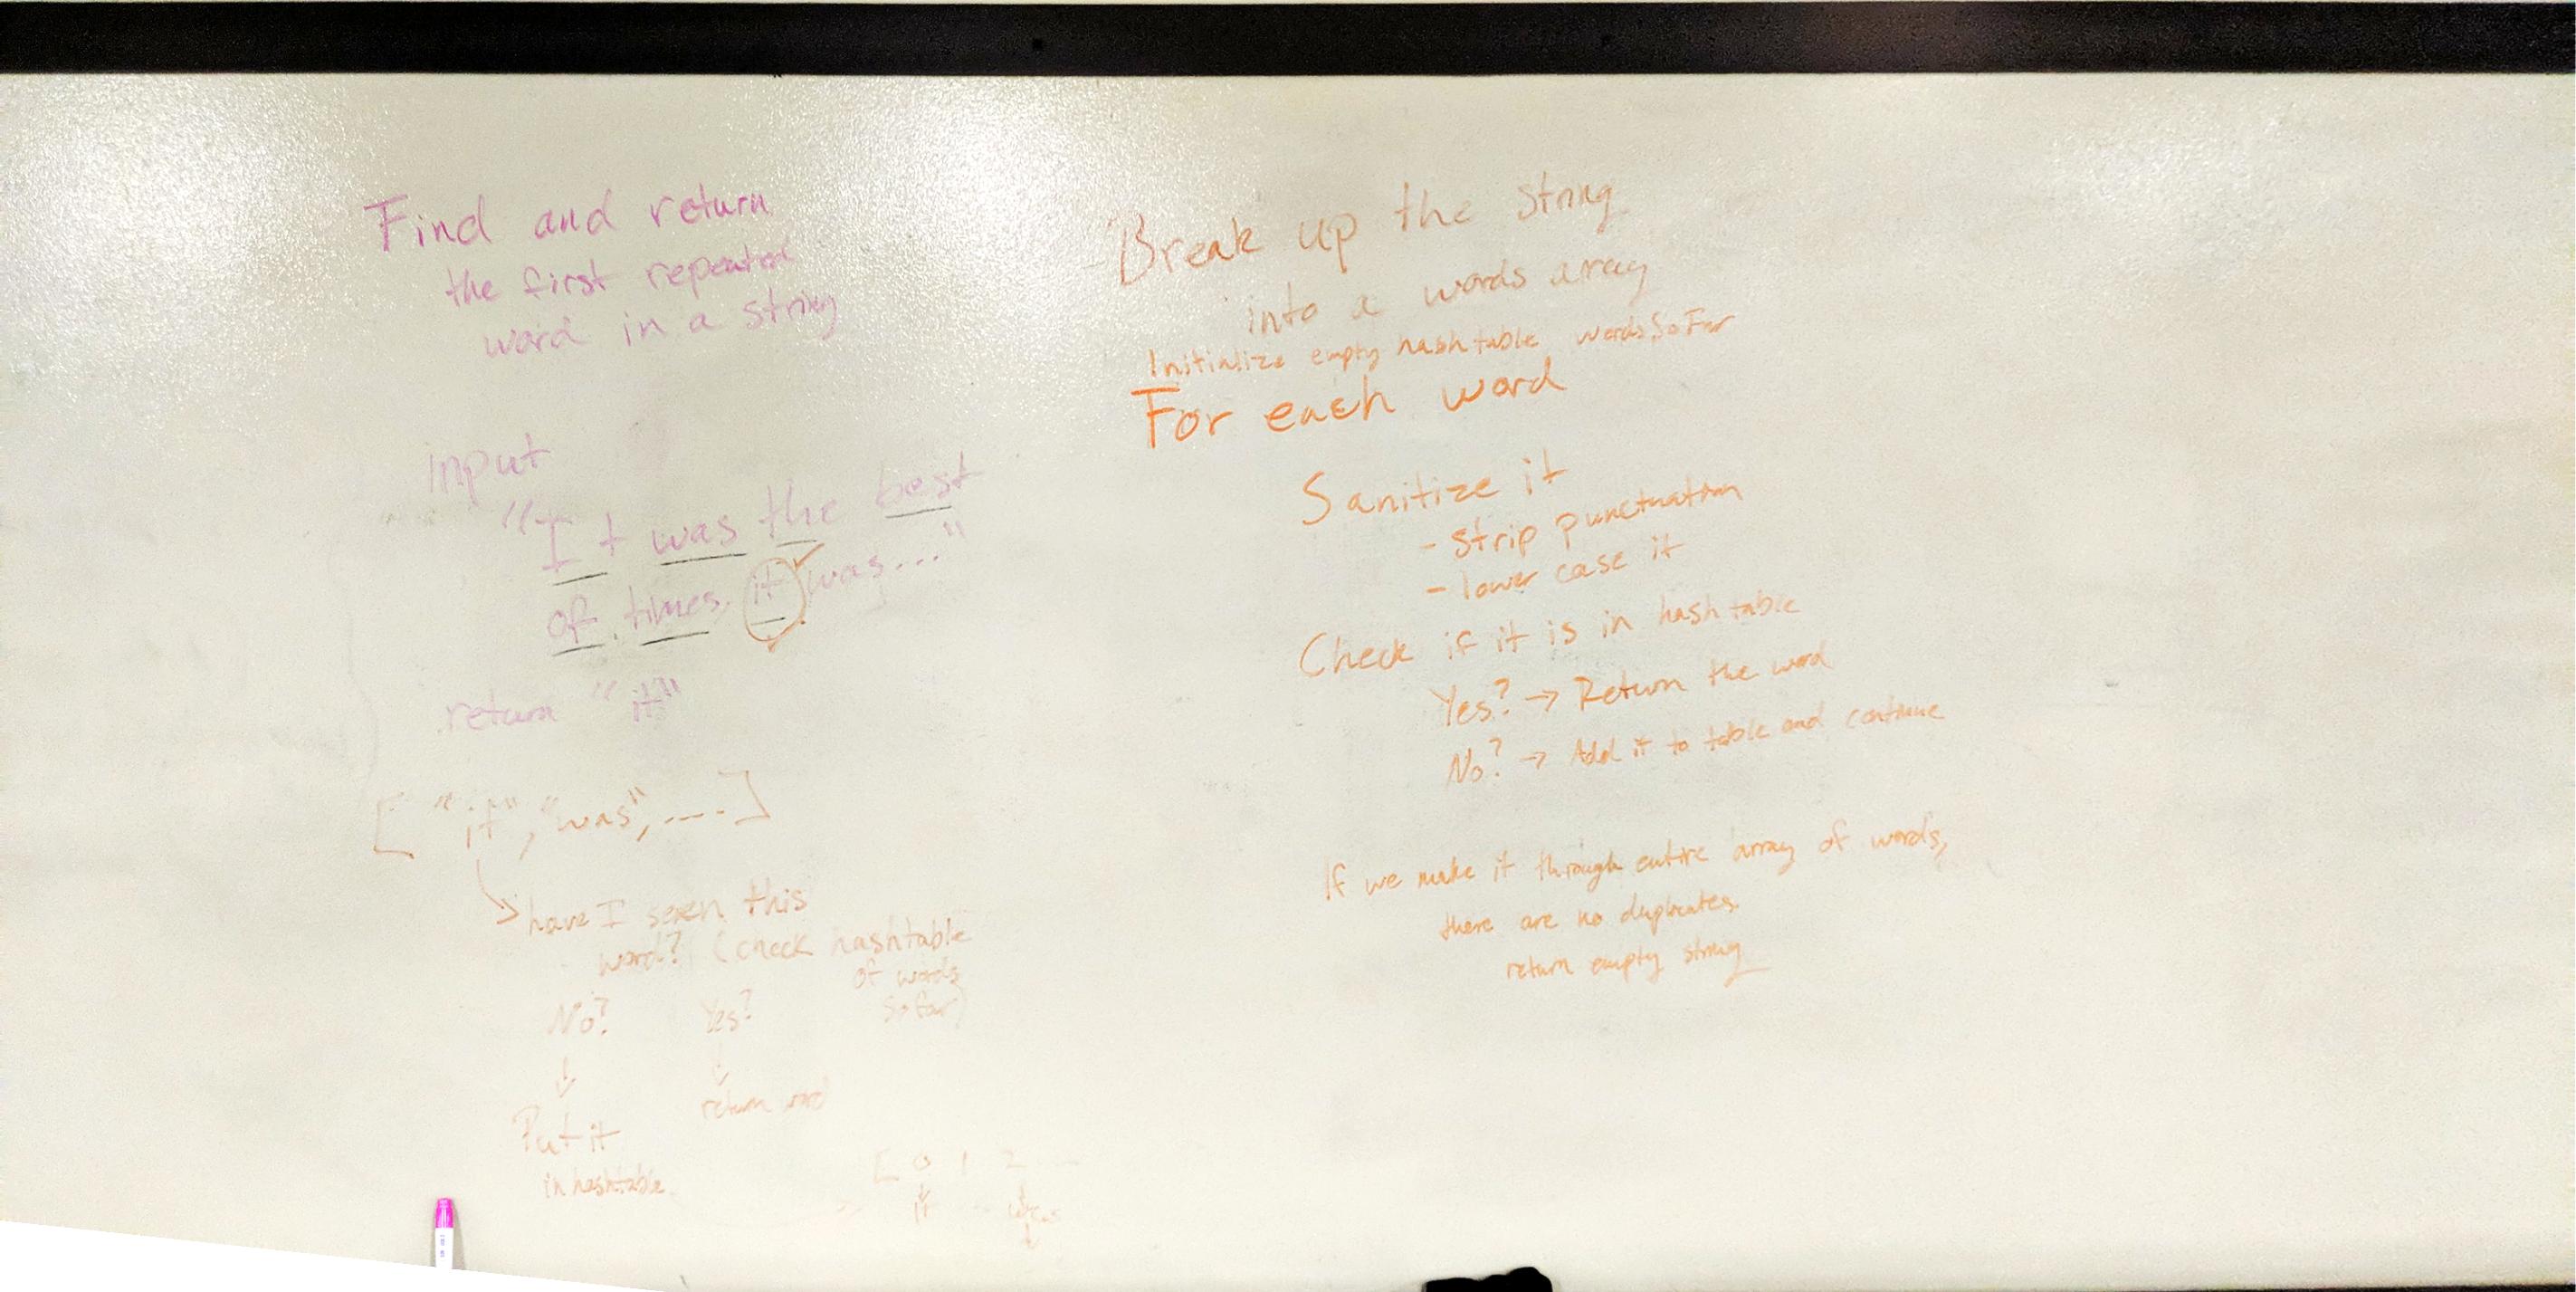 Find and return
the first repeated
word in a string
input
"It was the best
of times, it was..."
return "it"
["it", "was", ----]
have I seen this
word? (check hashtable
of words
so far)
No? Yes?
return word
Put it
in hashtable
[ 0 1 2 -
it was
- Break up the string
into a words array
Initialize empty hashtable wordsSoFar
For each word
Sanitize it
- strip punctuation
- lower case it
Check if it is in hashtable
Yes? → Return the word
No? → Add it to table and continue
If we make it through entire array of words,
there are no duplicates.
return empty string